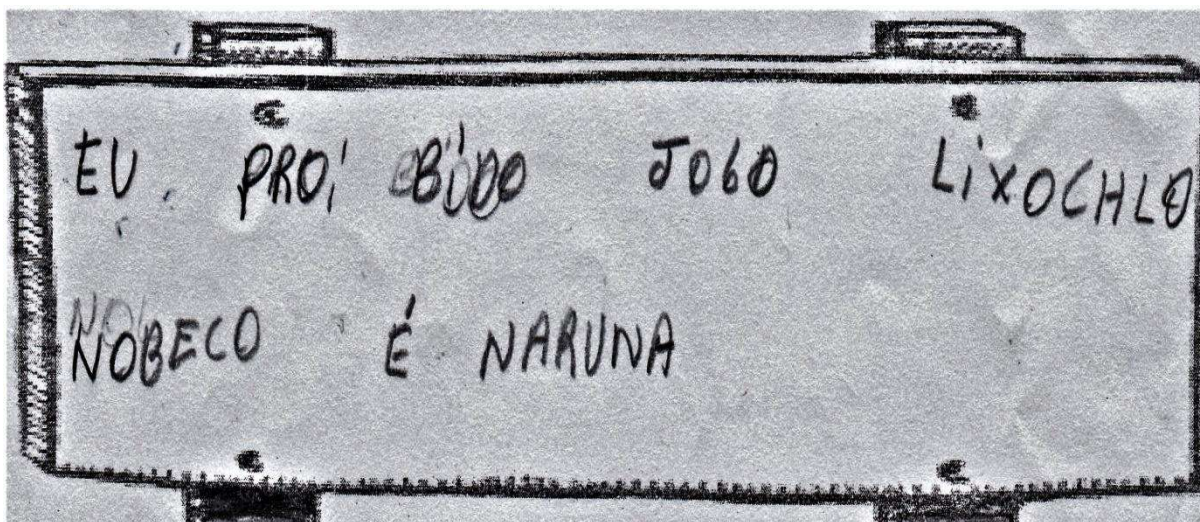 EU PROÍ BÍDO JOGO LIXOCHLO
NOBECO É NARUNA